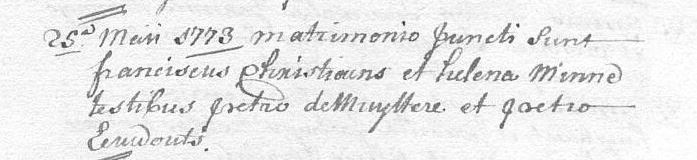 25ª Meii 1773 matrimonio juncti sunt
franciscus Christiaens et helena Minne
testibus petro deMuyttere et petro